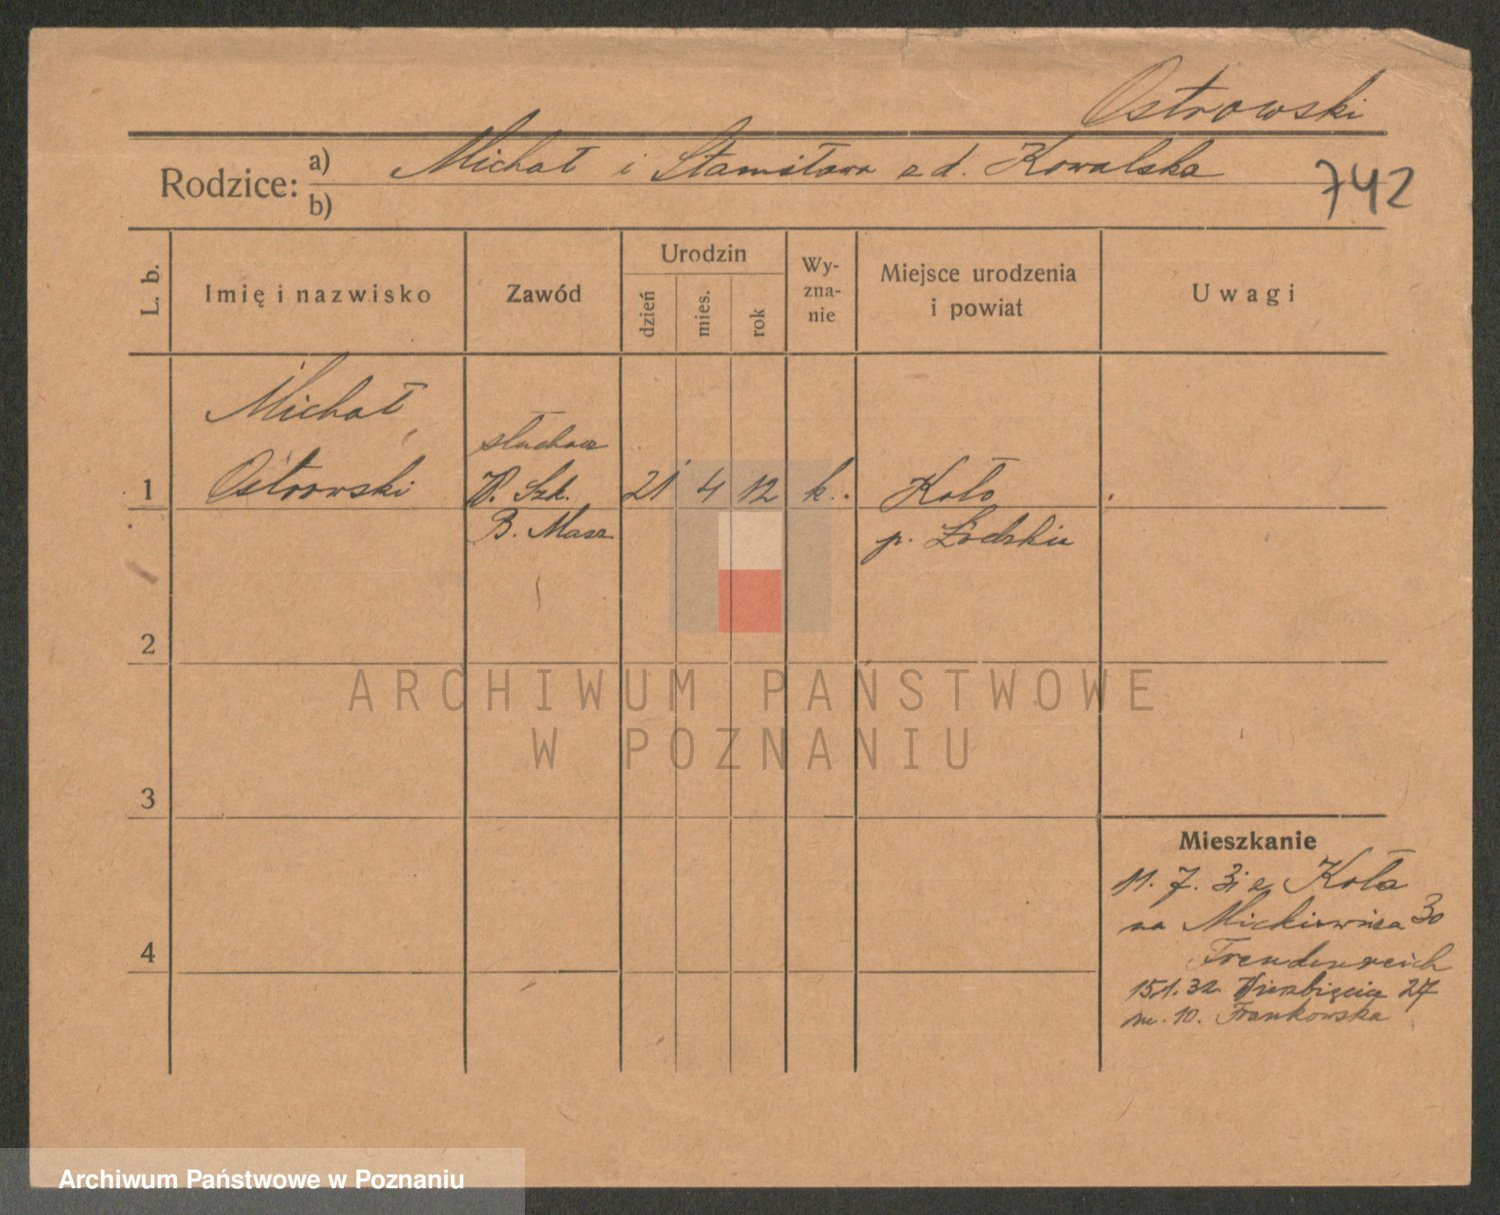 Ostrowski
Rodzice: a) Michał i Stanisława z d. Kowalska
b)
742
L. b.
Imię i nazwisko
Zawód
Urodzin
dzień
mies.
rok
Wy-
zna-
nie
Miejsce urodzenia
i powiat
Uwagi
Michał
Ostrowski
słuchacz
W. Szk.
B. Masz.
1
21 4 12 k.
Koło
p. Łódzkie
2
3
4
Mieszkanie
11. 7. 31 z Koła
na Mickiewicza 30
Freudenreich
15.1.32 Wierzbięcice 27
m. 10. Frankowska
ARCHIWUM PAŃSTWOWE
W POZNANIU
Archiwum Państwowe w Poznaniu